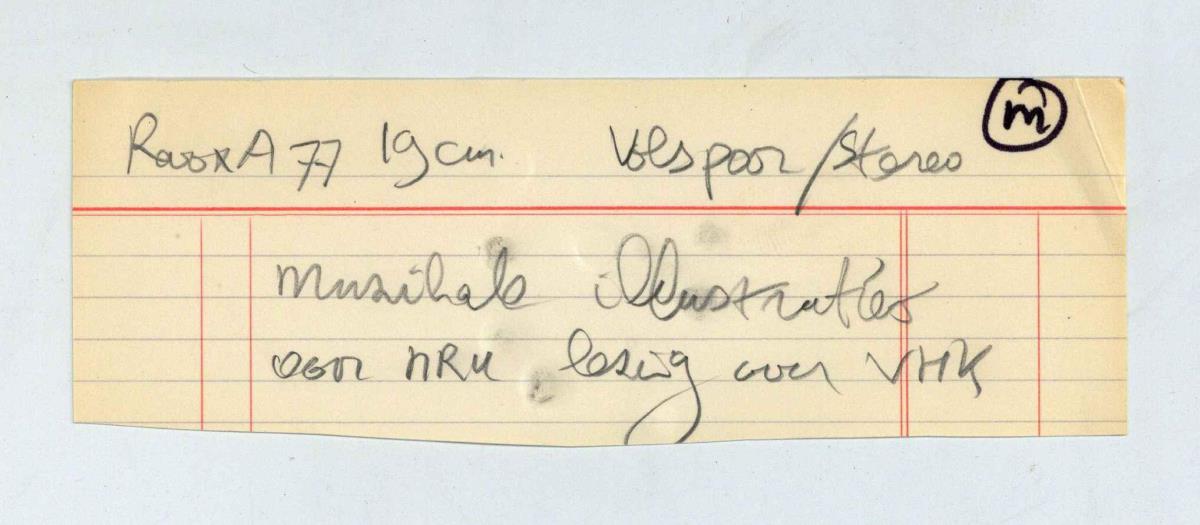 Revox A77 19 cm. Volspoor/Stereo m
Muzikale illustraties
voor NRU lezing over VHK